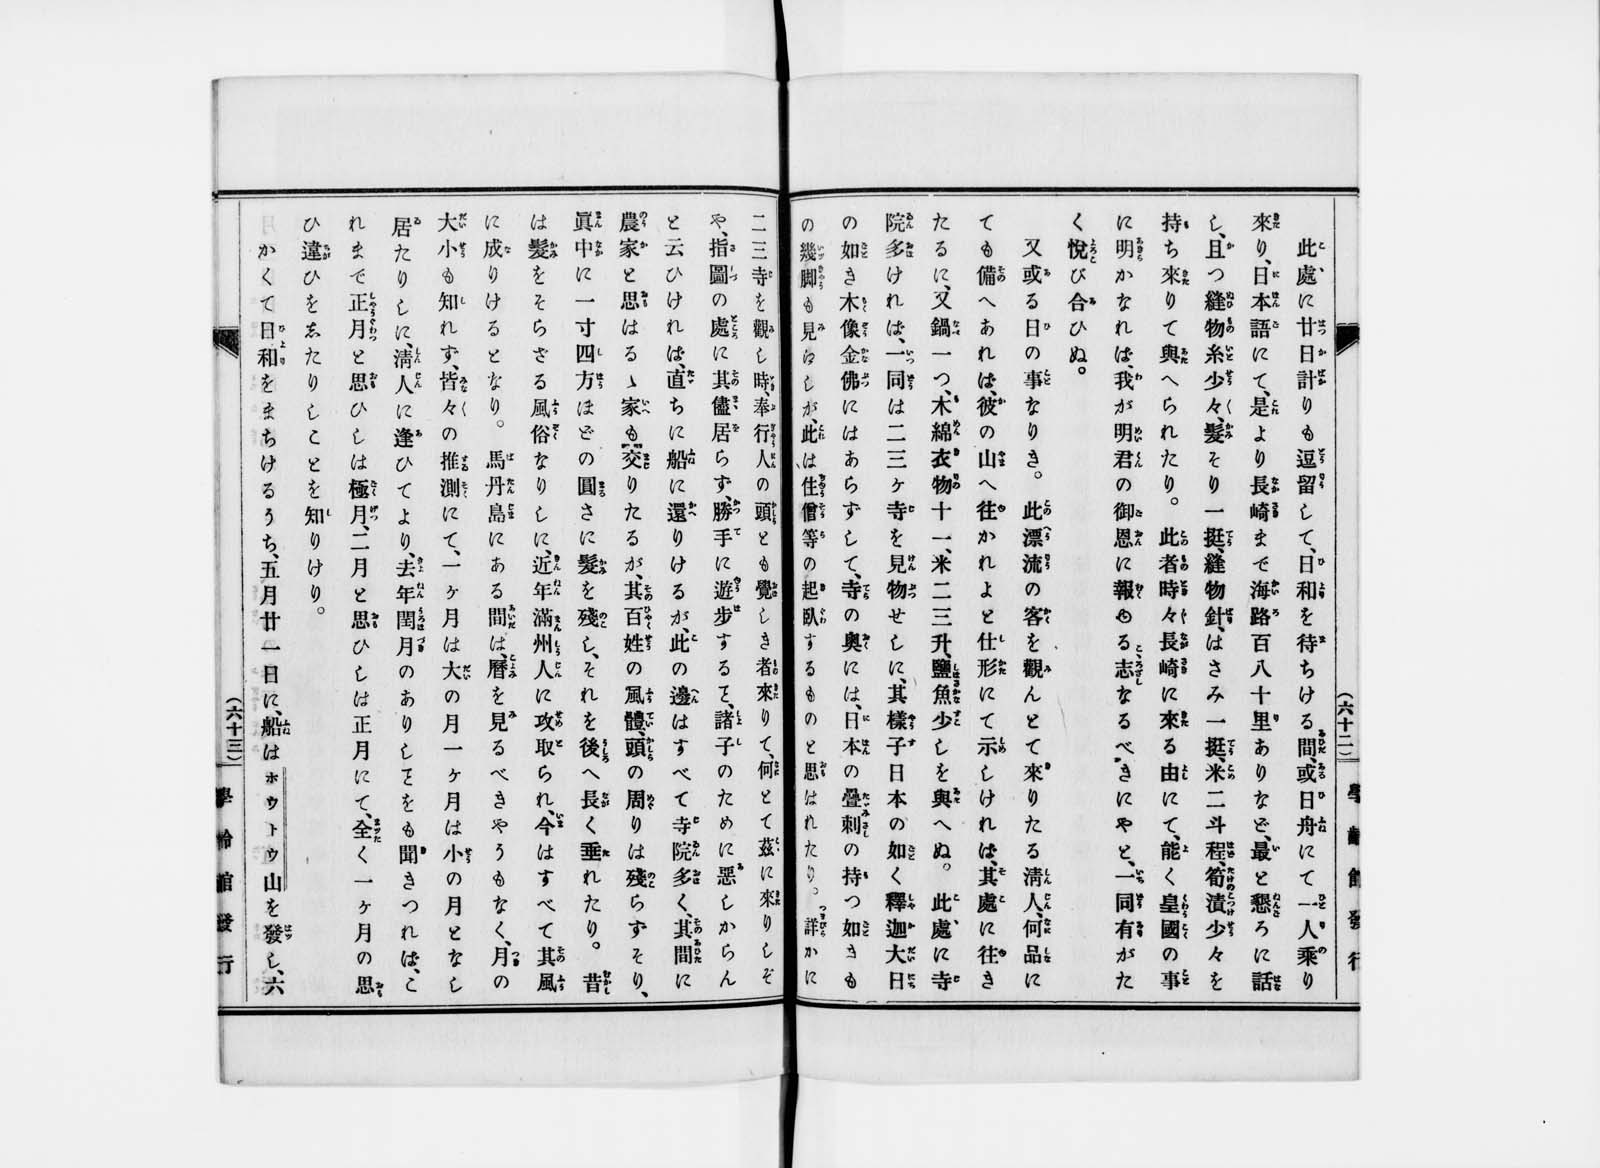 此處に廿日計りも逗留して、日和を待ちける間、或日舟にて一人乘り
來り、日本語にて、是より長崎まで海路百八十里ありなど、最と懇ろに話
し、且つ縫物糸少々、髮そり一挺、縫物針、はさみ一挺、米二斗程、筍漬少々を
持ち來りて與へられたり。此者時々長崎に來る由にて、能く皇國の事
に明かなれば、我が明君の御恩に報ゆる志なるべきにやと、一同有がた
く悅び合ひぬ。
又或る日の事なりき。此漂流の客を觀んとて來りたる淸人、何品に
ても備へあれば、彼の山へ往かれよと仕形にて示しければ、其處に往き
たるに、又鍋一つ、木綿衣物十一、米二三升、鹽魚少しを與へぬ。此處に寺
院多ければ、一同は二三ヶ寺を見物せしに、其樣子日本の如く釋迦大日
の如き木像金佛にはあらずして、寺の奧には、日本の疊刺の持つ如きも
の幾脚も見ゆしが、此は住僧等の起臥するものと思はれたり。詳かに
(六十二)
學齡館發行
二三寺を觀し時、奉行人の頭とも覺しき者來りて、何とて茲に來りしぞ
や、指圖の處に其儘居らず、勝手に遊步すると、諸子のために惡しからん
と云ひければ、直ちに船に還りけるが、此の邊はすべて寺院多く、其間に
農家と思はるゝ家も交りたるが、其百姓の風體、頭の周りは殘らずそり、
眞中に一寸四方ほどの圓さに髮を殘し、それを後へ長く垂れたり。昔
は髮をそらざる風俗なりしに、近年滿州人に攻取られ、今はすべて其風
に成りけるとなり。馬丹島にある間は、曆を見るべきやうもなく、月の
大小も知れず、皆々の推測にて、一ヶ月は大の月一ヶ月は小の月となし
居たりしに、淸人に逢ひてより、去年閏月のありしことをも聞きつれば、こ
れまで正月と思ひしは極月、二月と思ひしは正月にて、全く一ヶ月の思
ひ違ひを爲たりしことを知りけり。
かくて日和をまちけるうち、五月廿一日に、船はホウトウ山を發し、六
(六十三)
學齡館發行